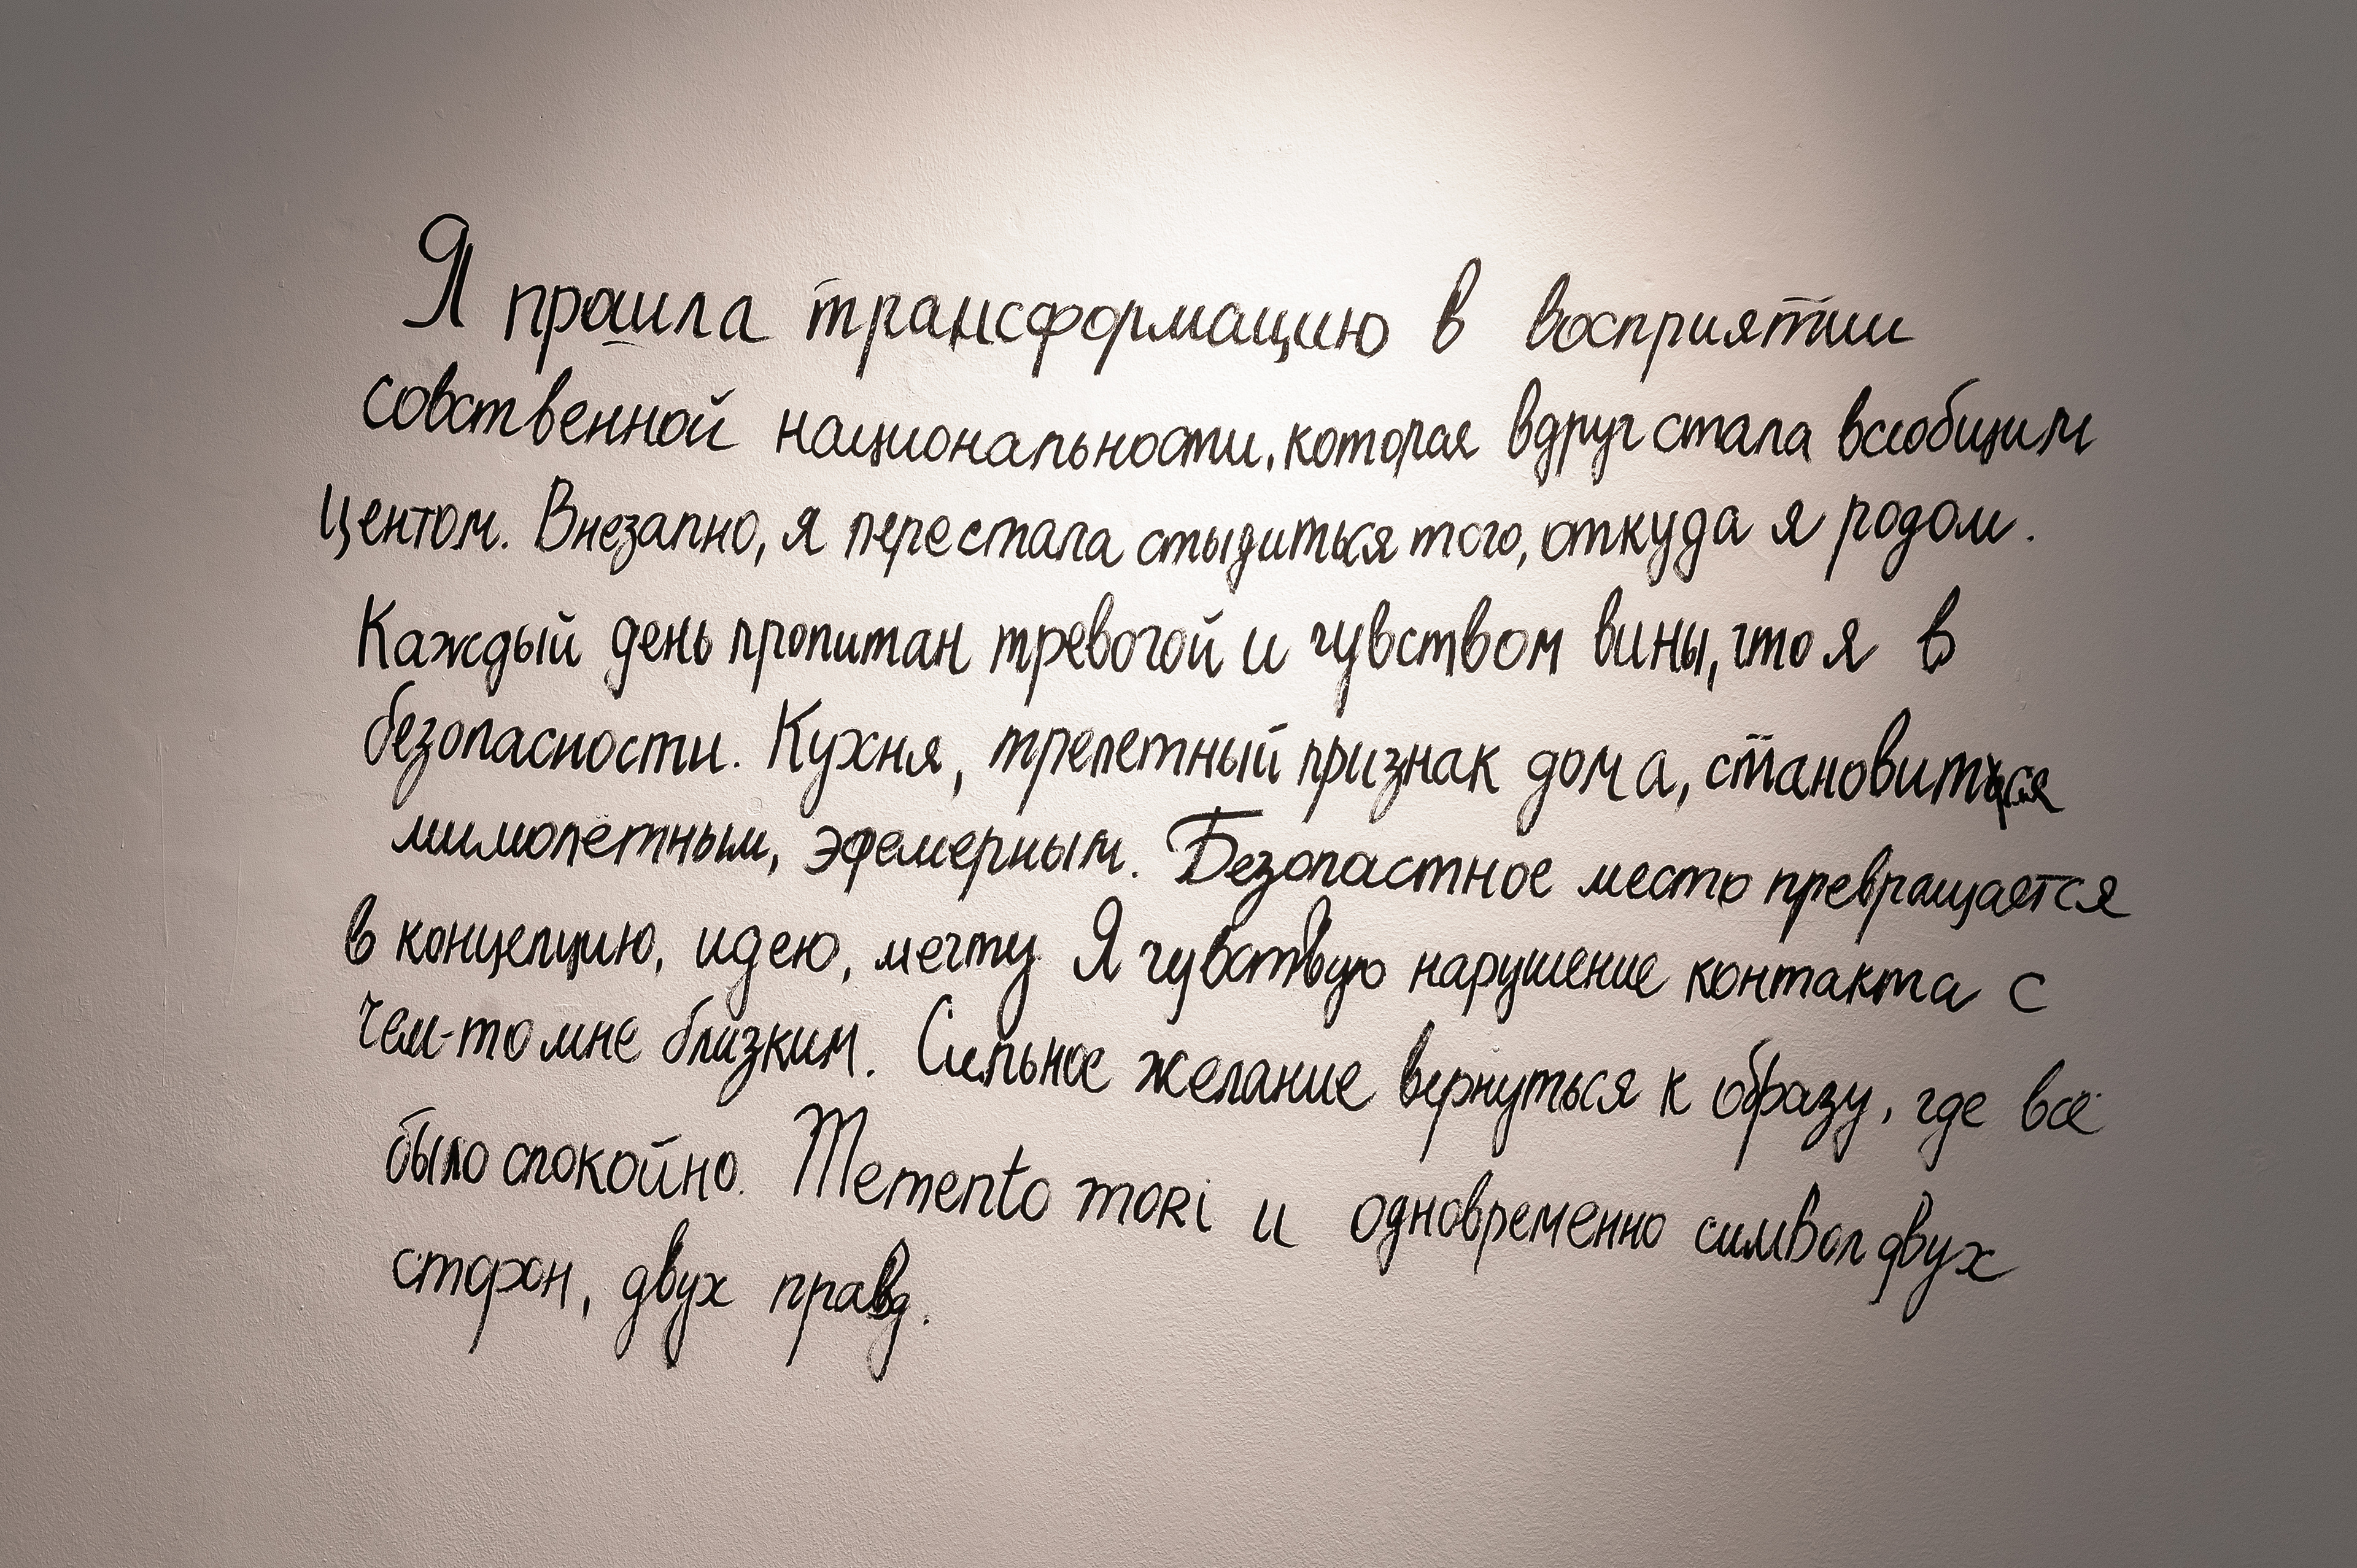 Я прошла трансформацию в восприятии
собственной национальности, которая вдруг стала всеобщим
центом. Внезапно, я перестала стыдиться того, откуда я родом.
Каждый день пропитан тревогой и чувством вины, что я в
безопасности. Кухня, трепетный признак дома, становится
мимолётным, эфемерным. Безопастное место превращается
в концепцию, идею, мечту. Я чувствую нарушение контакта с
чем-то мне близким. Сильное желание вернуться к образу, где всё
было спокойно. Memento mori и одновременно символ двух
сторон, двух правд.